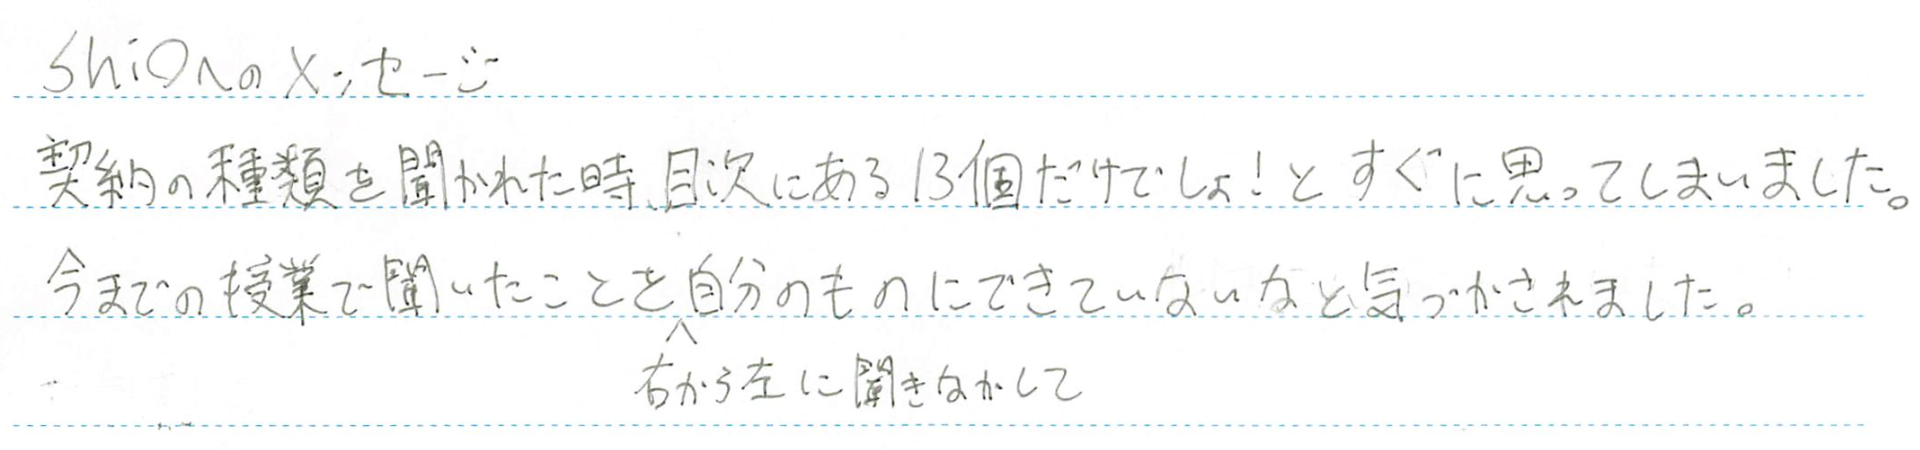 ShiOへのメッセージ
契約の種類を聞かれた時、目次にある13個だけでしょ!とすぐに思ってしまいました。
今までの授業で聞いたことを自分のものにできていないなと気づかされました。
^
右から左に聞きなかして